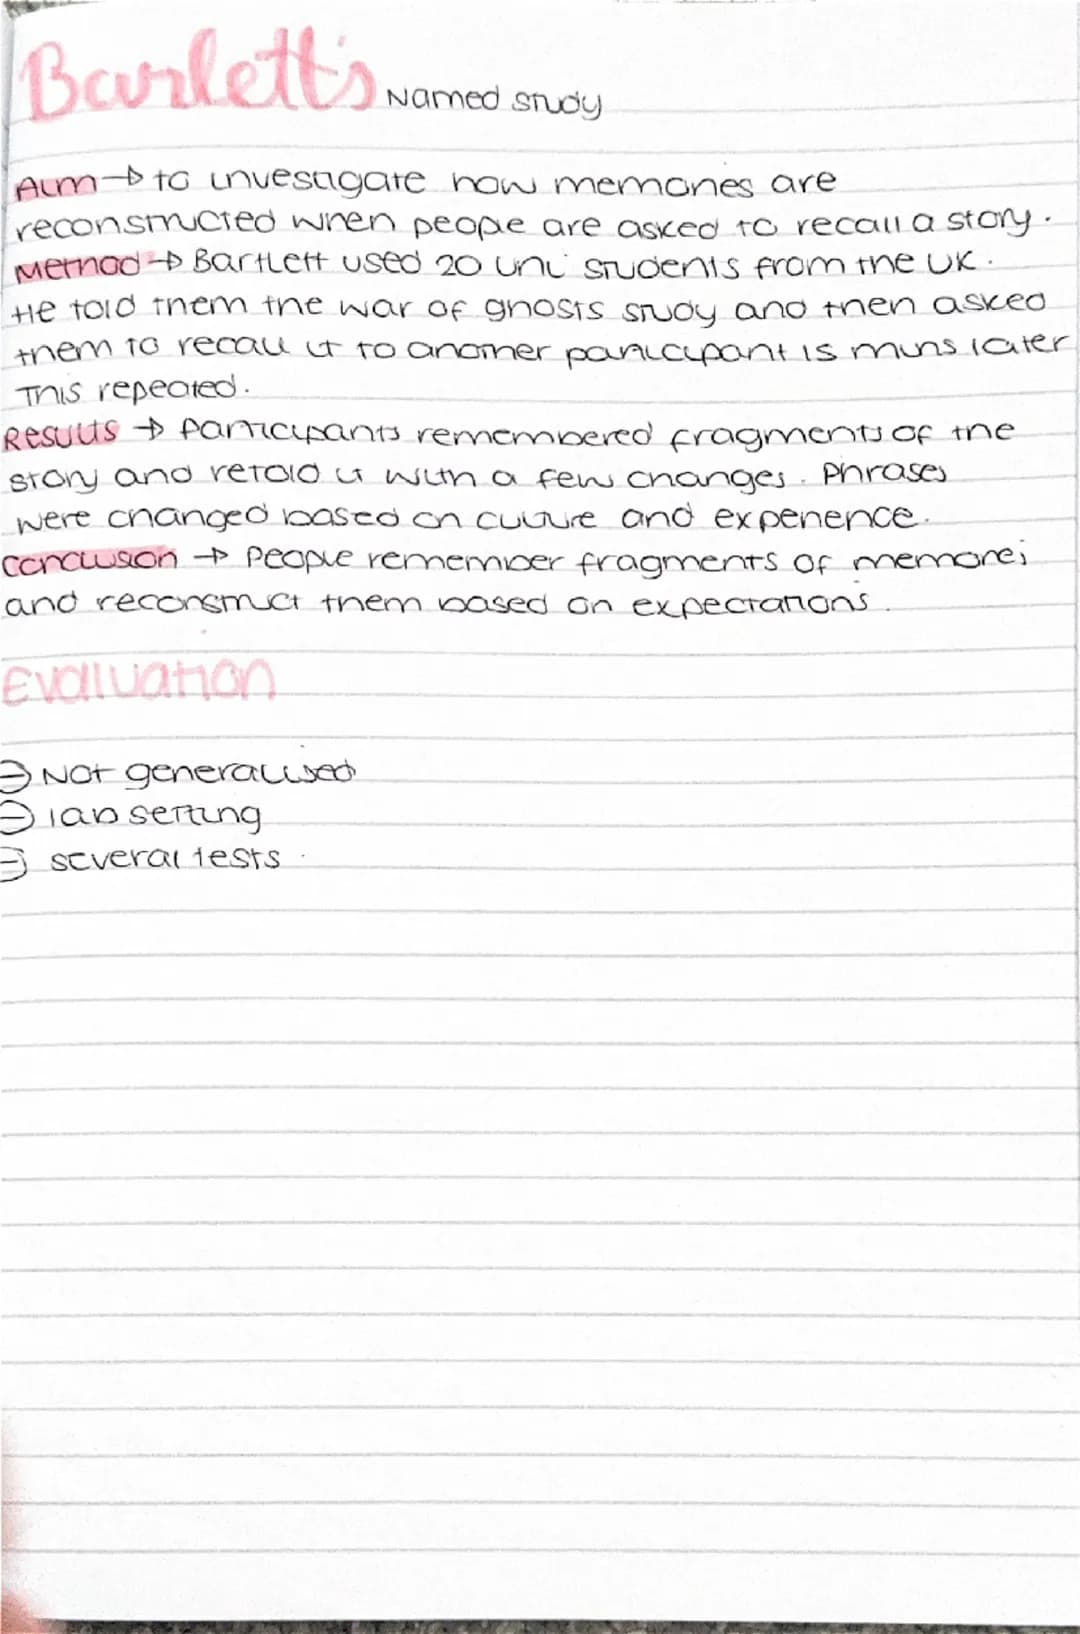 Barlett's Named study
Aim → to investigate how memories are
reconstructed when people are asked to recall a story.
Method → Bartlett used 20 uni students from the UK.
He told them the war of ghosts study and then asked
them to recall it to another participant 15 mins later
This repeated.
Results → Participants remembered fragments of the
story and retold it with a few changes. Phrases
were changed based on culture and experience.
Conclusion → People remember fragments of memories
and reconstruct them based on expectations.
Evaluation
⊖ Not generalised
⊖ lab setting
⊖ several tests.